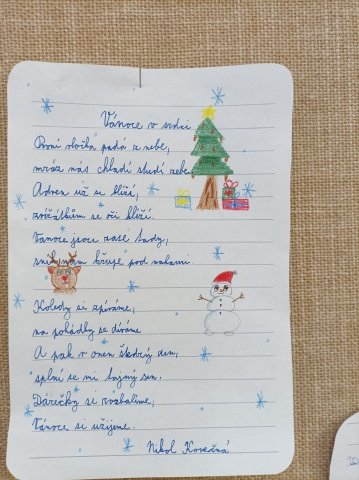 Vánoce v srdci
První vločka padá z nebe,
mráz nás chladí studí zebe.
Advent už se blíží,
zvířátkům se oči klíží.
Vánoce jsou zase tady,
sníh nám křupe pod nohami.
Koledy si zpíváme,
na pohádky se díváme
A pak v onen štědrý den,
splní se mi tajný sen.
Dárečky si rozbalíme,
Vánoce si užijeme.
Nikol